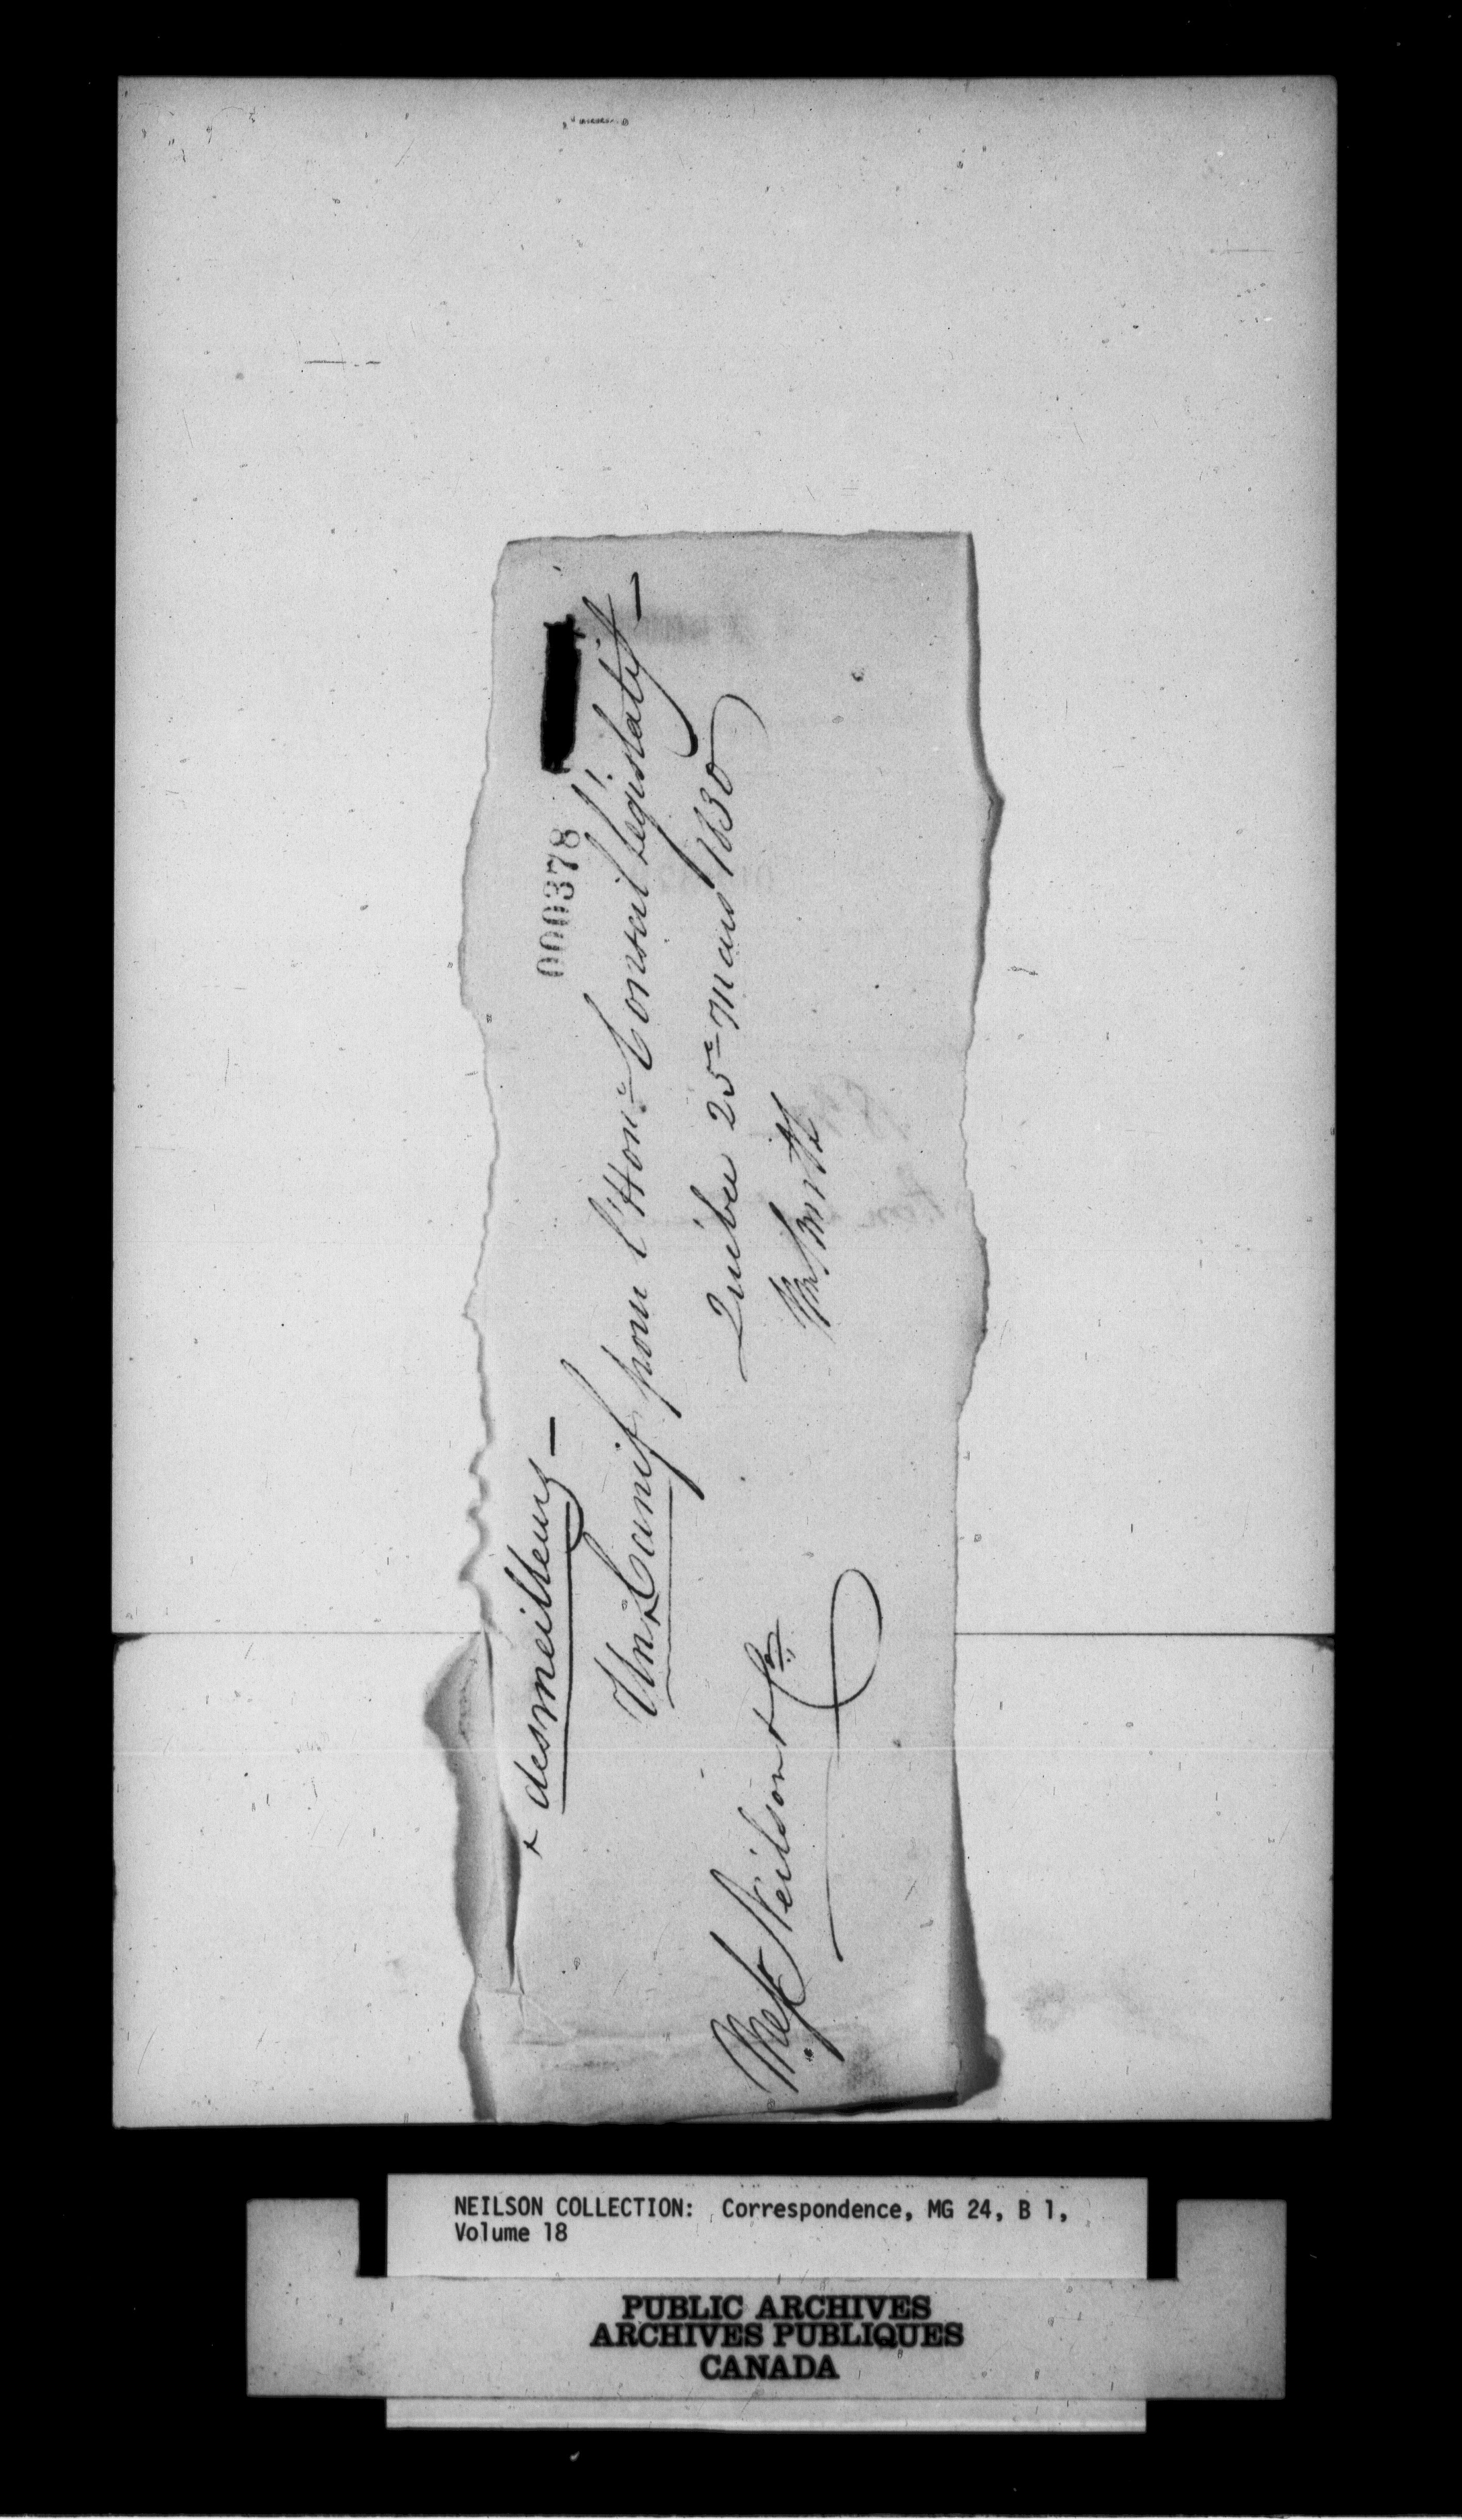 000378
Un ^ Canif pour l'Hon.e Conseil Législatif —
^ des meilleurs —
Québec 25e Mars 1830
Wm Smith
Messrs Neilson & Co
NEILSON COLLECTION: Correspondence, MG 24, B 1,
Volume 18
PUBLIC ARCHIVES
ARCHIVES PUBLIQUES
CANADA